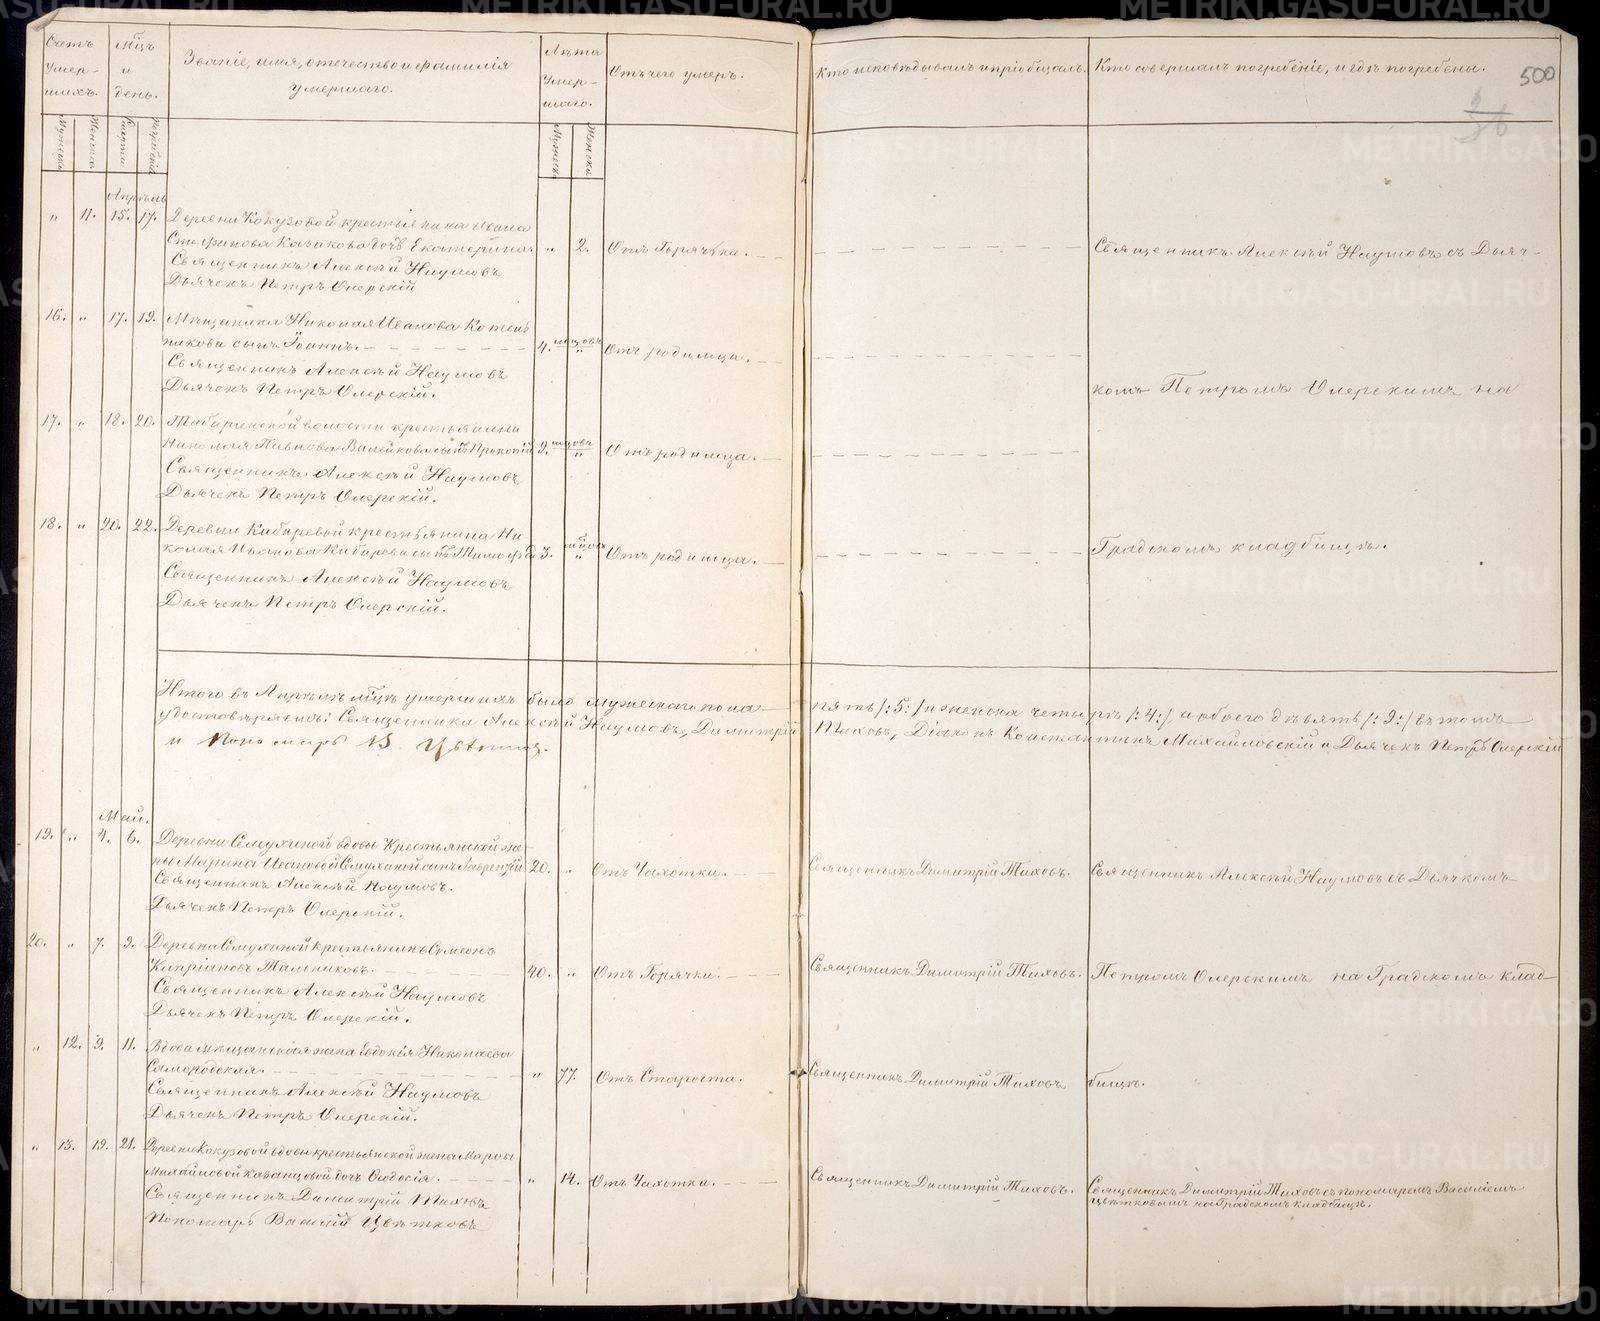 Счетъ умер-шихъ.
Мужеска
Женска
Мѣцъ и день.
Смерти
Погребенія
Званіе, имя, отечество и фамилія умершаго.
Лѣта умер-шаго.
Мужеска
Женска
Отъ чего умеръ.
Кто исповѣдывалъ и пріобщалъ.
Кто совершалъ погребеніе, и гдѣ погребены.
500
Апрѣль
„ 11. 15. 17. Деревни Кокузовой крестьянина Ивана
Стефанова Казакова дочь Екатерина „ 2. Отъ Горячки.
Священникъ Алексѣй Наумовъ
Дьячекъ Петръ Озерскій
Священникъ Алексѣй Наумовъ съ Дьяч-
16. „ 17. 19. Мѣщанина Николая Иванова Котель
никова сынъ Іоаннъ. 4. мѣцовъ „ Отъ родимца.
Священникъ Алексѣй Наумовъ
Дьячекъ Петръ Озерскій.
комъ Петромъ Озерскимъ на
17. „ 18. 20. Табаринской волости крестьянина
Николая Павлова сынъ Прокопій 9. мѣцовъ „ Отъ родимца.
Священникъ Алексѣй Наумовъ
Дьячекъ Петръ Озерскій.
18. „ 20. 22. Деревни Кибиревой крестьянина Ни
колая Иванова Кибирева сынъ Тимофей 3. „ Отъ родимца.
Священникъ Алексѣй Наумовъ
Дьячекъ Петръ Озерскій.
Градскомъ кладбищѣ.
Итого въ Апрѣлѣ мѣцѣ умершихъ было мужескаго пола пять /:5:/ и женска четыре /:4:/, а обоего девять /:9:/ въ томъ
удостовѣряемъ: Священники Алексѣй Наумовъ, Димитрій Тиховъ, Діаконъ Константинъ Михайловскій и Дьячекъ Петръ Озерскій
и Пономарь В. Цвѣтковъ.
Май.
19. „ 4. 6. Деревни Смухиной вдовы Крестьянской же-
ны Марины Ивановой Смухиной сынъ Лаврентій 20. „ Отъ Чахотки.
Священникъ Димитрій Тиховъ.
Священникъ Алексѣй Наумовъ съ Дьячкомъ
Священникъ Алексѣй Наумовъ.
Дьячекъ Петръ Озерскій.
20. „ 7. 9. Деревни Смухиной крестьянинъ Симеонъ
Кипріановъ Тальниковъ. 40. „ Отъ Горячки.
Священникъ Димитрій Тиховъ.
Петромъ Озерскимъ на Градскомъ клад-
Священникъ Алексѣй Наумовъ
Дьячекъ Петръ Озерскій.
„ 12. 9. 11. Вдова мѣщанская жена Евдокія Николаева
Самородская. „ 77. Отъ Старости.
Священникъ Димитрій Тиховъ
бищѣ.
Священникъ Алексѣй Наумовъ
Дьячекъ Петръ Озерскій.
„ 13. 19. 21. Деревни Кокузовой вдовы крестьянской жена Марѳы
Михайловой Казанцовой дочь Ѳеодосія. „ 14. Отъ Чахотки.
Священникъ Димитрій Тиховъ.
Священникъ Димитрій Тиховъ съ пономаремъ Василіемъ
Цвѣтковымъ на Градскомъ кладбищѣ.
Священникъ Димитрій Тиховъ
Пономарь Василій Цвѣтковъ
METRIKI.GASO-URAL.RU